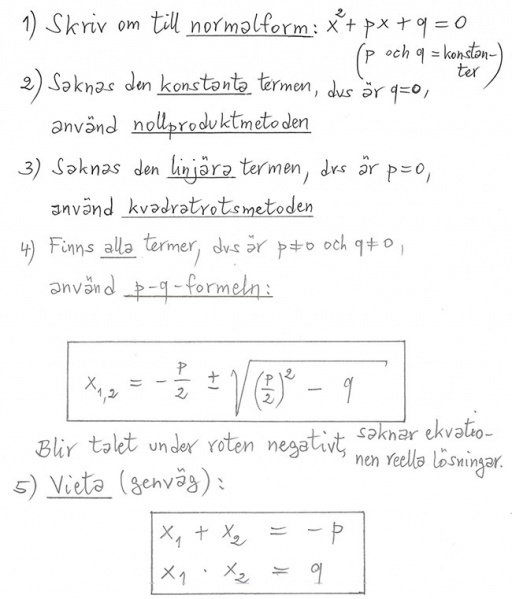 1) Skriv om till normalform: x² + px + q = 0
(p och q = konstan-
ter)
2) Saknas den konstanta termen, dvs är q=0,
använd nollproduktmetoden
3) Saknas den linjära termen, dvs är p=0,
använd kvadratrotsmetoden
4) Finns alla termer, dvs är p≠0 och q≠0,
använd p-q-formeln:
x₁,₂ = - p/2 ± √((p/2)² - q)
Blir talet under roten negativt, saknar ekvatio-
nen reella lösningar.
5) Vieta (genväg):
x₁ + x₂ = -p
x₁ · x₂ = q